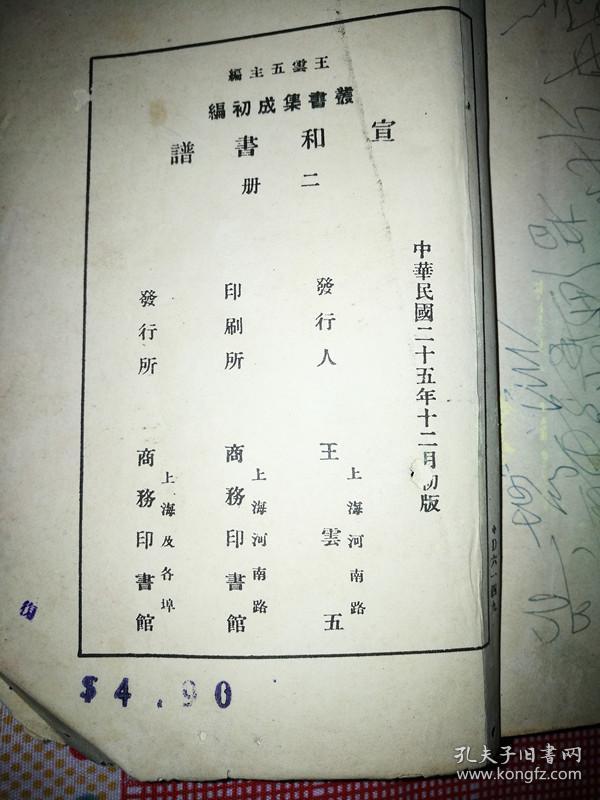 王雲五主編
叢書集成初編
宣和書譜
二册
中華民國二十五年十二月初版
發行人 王雲五
上海河南路
印刷所 商務印書館
上海河南路
發行所 商務印書館
上海及各埠
$4.90
孔夫子旧书网
www.kongfz.com